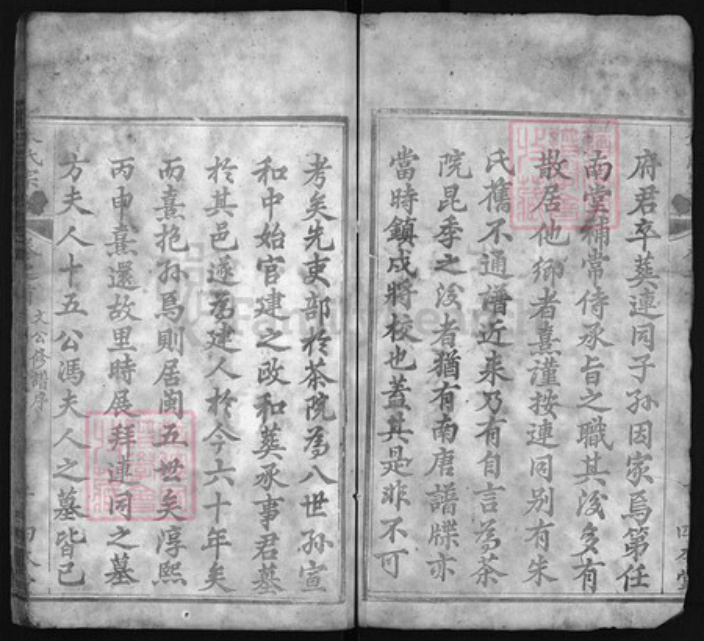 府君卒葬連同子孫因家焉第任
南堂補常侍承旨之職其後多有
散居他鄉者熹謹按連同别有朱
氏攜不通譜近来乃有自言為茶
院昆季之後者猶有南唐譜牒亦
當時鎮戍將校也蓋其是非不可
考矣先吏部於茶院為八世孫宣
和中始官建之政和葬承事君墓
於其邑遂為建人於今六十年矣
而熹抱孫焉則居閩五世矣淳熙
丙申熹還故里時展拜連同之墓
方夫人十五公馮夫人之墓皆已
氏宗
文公修譜序
FamilySearch